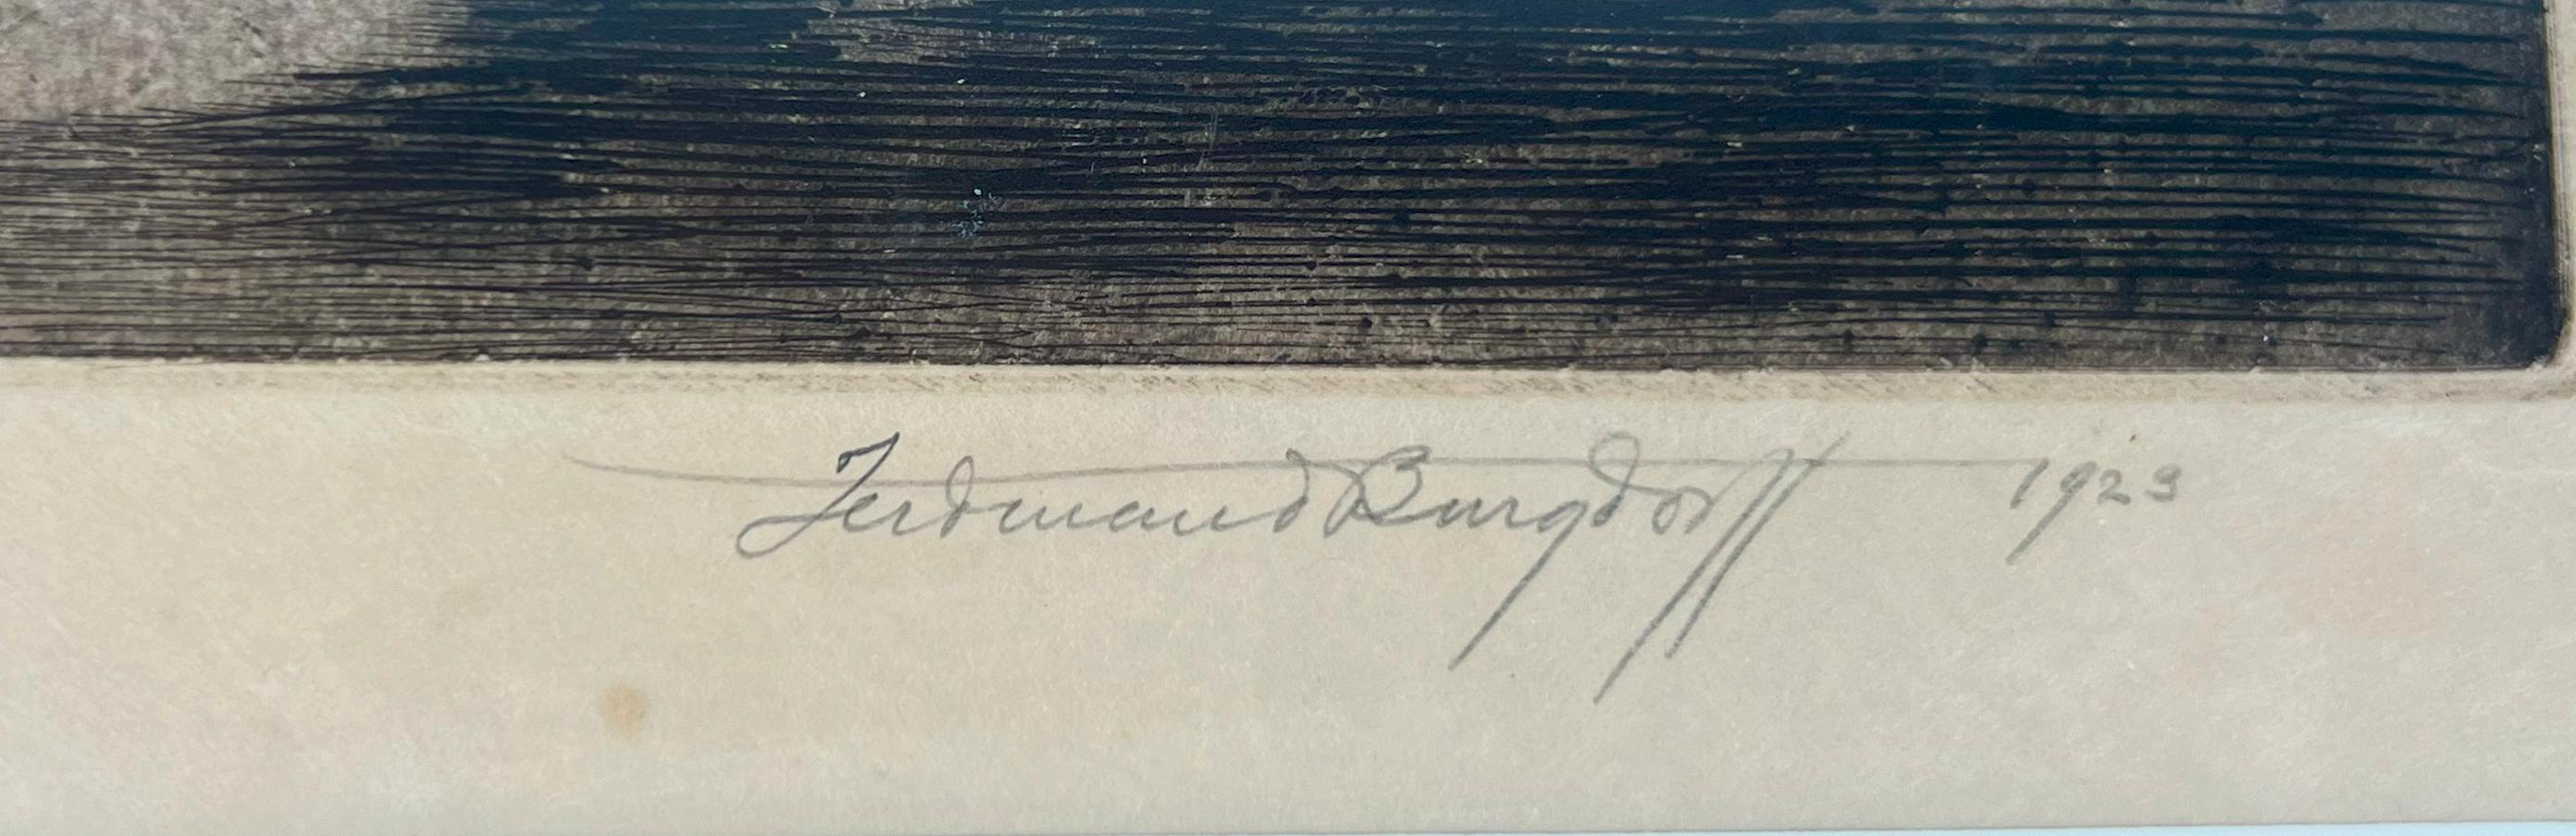 Ferdinand Burgdorff 1923